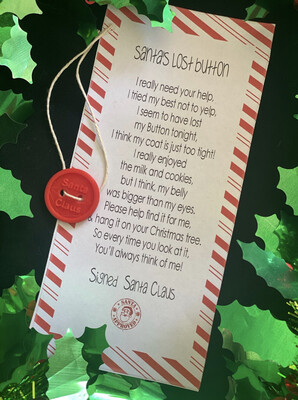 Santa's Lost Button
I really need your help,
I tried my best not to yelp,
I seem to have lost
my Button tonight,
I think my coat is just too tight!
I really enjoyed
the milk and cookies,
but I think, my belly
was bigger than my eyes.
Please help find it for me,
& hang it on your Christmas tree,
So every time you look at it,
You'll always think of me!
Signed Santa Claus
SANTA
APPROVED
Santa
Claus